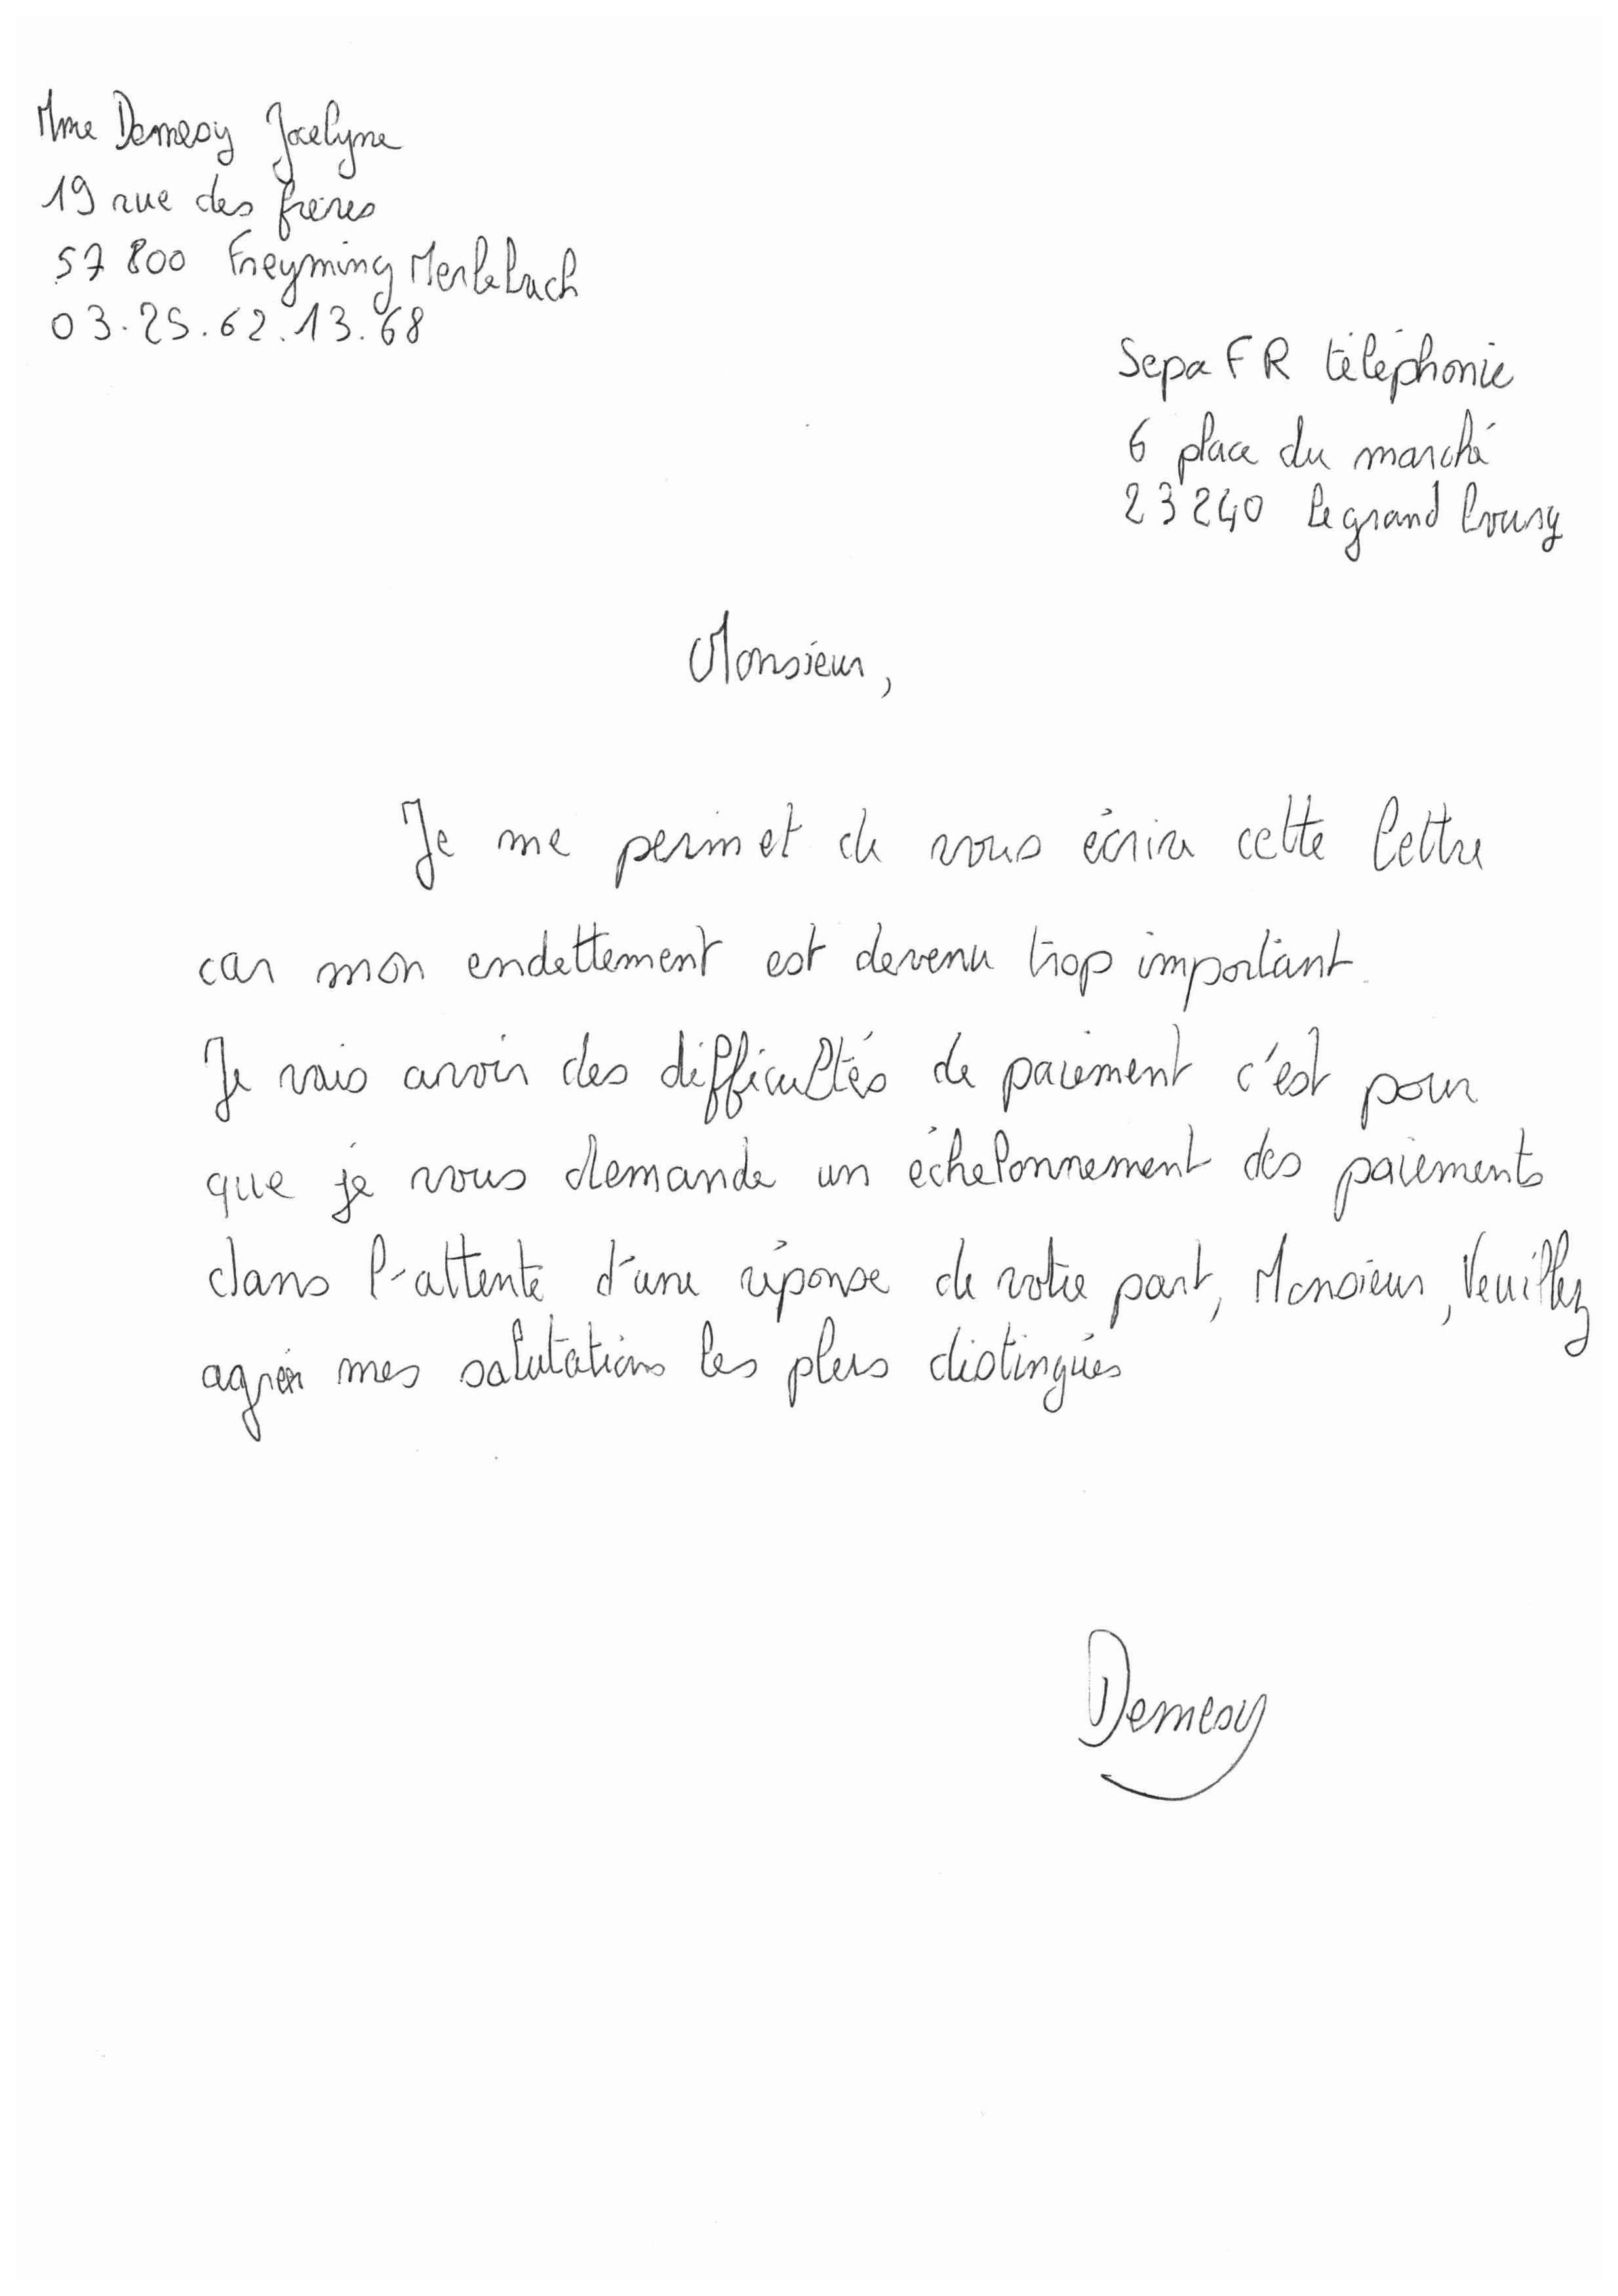 Mme Demesy Jocelyne
19 rue des frères
57 800 Freyming Merlebach
03.25.62.13.68
Sepa FR téléphonie
6 place du marché
23240 Le grand bourg
Monsieur,
Je me permet de vous écrire cette lettre
car mon endettement est devenu trop important.
Je vais avoir des difficultés de paiement c'est pour
que je vous demande un échelonnement des paiements
dans l'attente d'une réponse de votre part, Monsieur, Veuillez
agréer mes salutations les plus distingués
Demesy